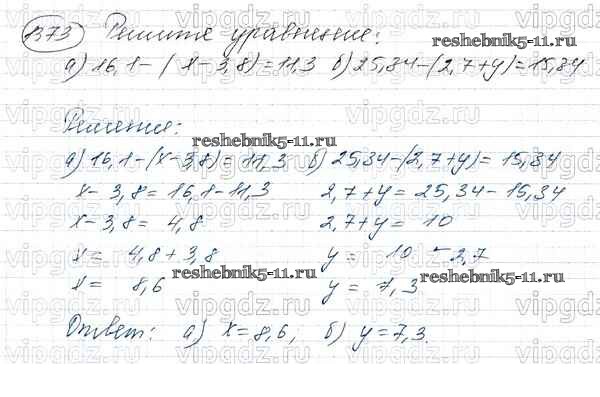 1373 Решите уравнение:
а) 16,1-(х-3,8)=11,3 б) 25,34-(2,7+y)=15,34
Решение:
а) 16,1-(х-3,8)=11,3 б) 25,34-(2,7+y)= 15,34
х- 3,8= 16,1-11,3 2,7+y= 25,34-15,34
х-3,8= 4,8 2,7+y= 10
х= 4,8+3,8 y= 10-2,7
х= 8,6 y= 7,3
Ответ: а) х=8,6; б) y=7,3.
reshebnik5-11.ru
reshebnik5-11.ru
reshebnik5-11.ru
reshebnik5-11.ru
vipgdz.ru